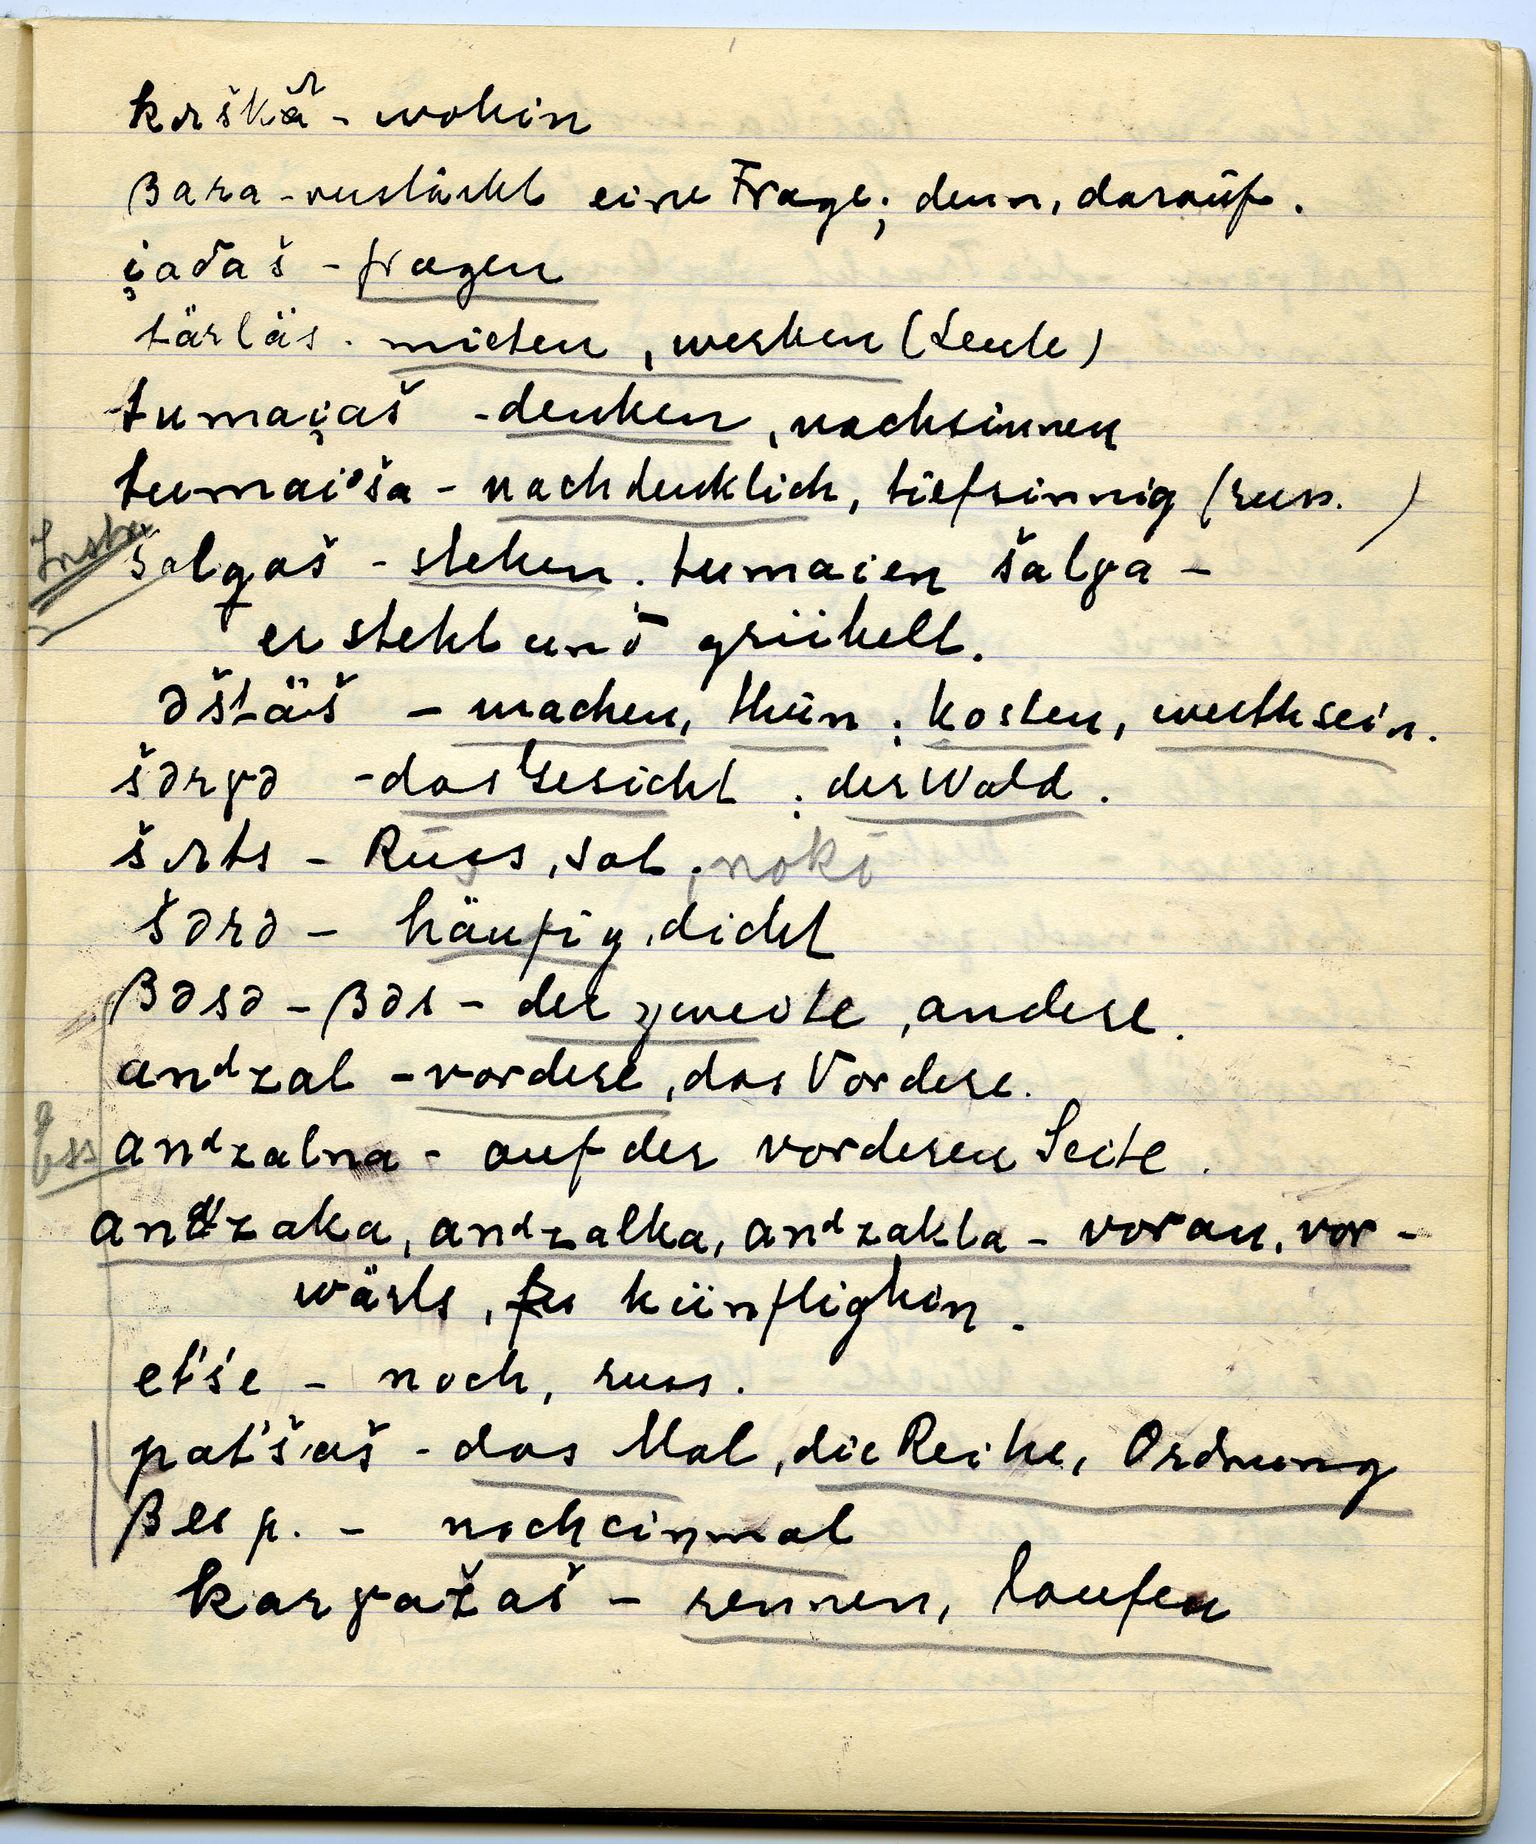 kəškə̑ - wohin
βara - verstärkt eine Frage; denn, darauf.
i̮ađaš - fragen
tärläs - mieten, werben (Leute)
tumai̮aš - denken, nachsinnen
tumai̮ša - nachdenklich, tiefsinnig (russ. )
šalgaš - stehen. tumaien šalγa -
er steht und grübelt.
əštäš - machen, thun; kosten, werth sein.
šərγə - das Gesicht; der Wald.
- Russ, sot.
šərə - häufig, dicht
βəsə - βəs - der zweite, andere.
anᵈzal - vordere, das Vordere.
anᵈzalna - auf der vorderen Seite.
anᵈzaka, anᵈzalka, anᵈzakla - voran, vor-
wärts, künftighin.
et́śe - noch, russ.
pat́šaš - das Mal, die Reihe, Ordnung
βes p. - noch einmal
karγažaš - rennen, laufen